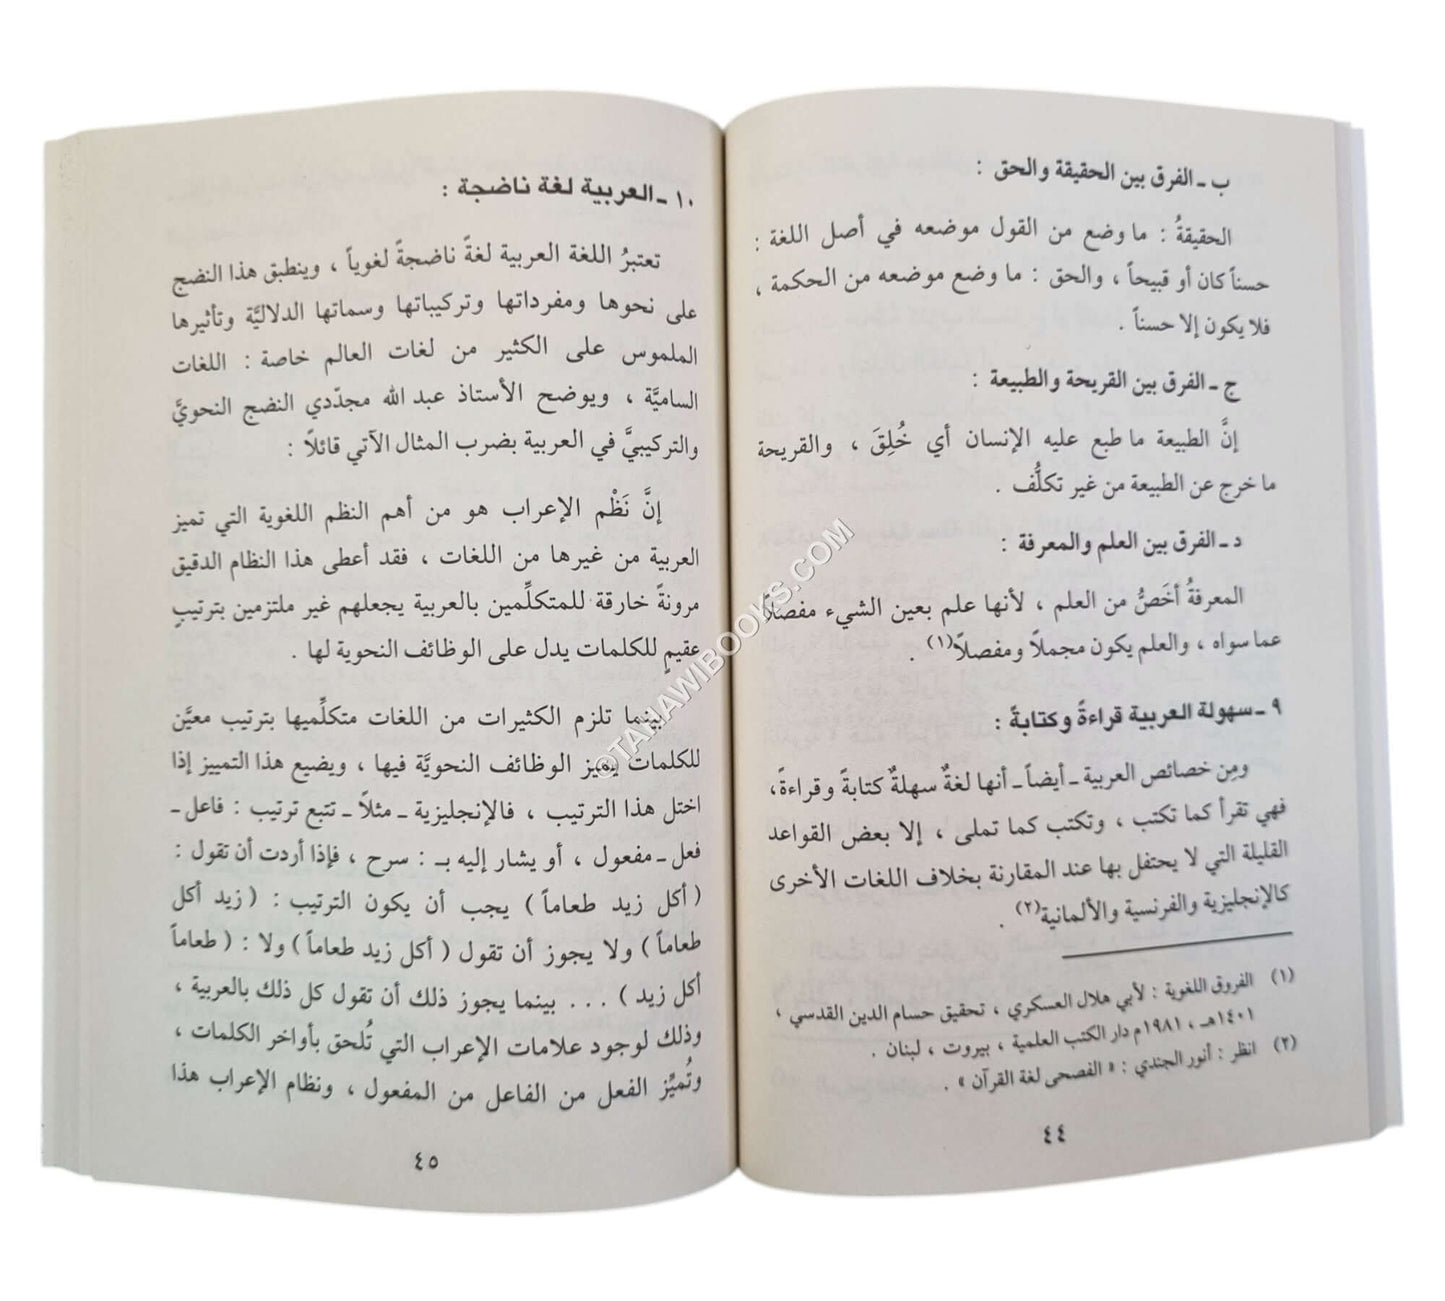 ب ـ الفرق بين الحقيقة والحق :
الحقيقةُ : ما وضع من القول موضعه في أصل اللغة :
حسناً كان أو قبيحاً ، والحق : ما وضع موضعه من الحكمة ،
فلا يكون إلا حسناً .
ج ـ الفرق بين القريحة والطبيعة :
إنَّ الطبيعة ما طبع عليه الإنسان أي خُلِقَ ، والقريحة
ما خرج عن الطبيعة من غير تكلُّف .
د ـ الفرق بين العلم والمعرفة :
المعرفةُ أخَصُّ من العلم ، لأنها علم بعين الشيء مفصلاً
عما سواه ، والعلم يكون مجملاً ومفصلاً(١) .
٩ ـ سهولة العربية قراءةً وكتابةً :
ومِن خصائص العربية ـ أيضاً ـ أنها لغةٌ سهلةٌ كتابةً وقراءةً ،
فهي تقرأ كما تكتب ، وتكتب كما تملى ، إلا بعض القواعد
القليلة التي لا يحتفل بها عند المقارنة بخلاف اللغات الأخرى
كالإنجليزية والفرنسية والألمانية(٢) .
(١) الفروق اللغوية : لأبي هلال العسكري ، تحقيق حسام الدين القدسي ،
١٤٠١هـ ، ١٩٨١م دار الكتب العلمية ، بيروت ، لبنان .
(٢) انظر : أنور الجندي : « الفصحى لغة القرآن » .
٤٤
١٠ ـ العربية لغة ناضجة :
تعتبرُ اللغة العربية لغةً ناضجةً لغوياً ، وينطبق هذا النضج
على نحوها ومفرداتها وتركيباتها وسماتها الدلاليَّة وتأثيرها
الملموس على الكثير من لغات العالم خاصة : اللغات
الساميَّة ، ويوضح الأستاذ عبد الله مجدّدي النضج النحويَّ
والتركيبيَّ في العربية بضرب المثال الآتي قائلاً :
إنَّ نَظْم الإعراب هو من أهم النظم اللغوية التي تميز
العربية من غيرها من اللغات ، فقد أعطى هذا النظام الدقيق
مرونةً خارقة للمتكلِّمين بالعربية يجعلهم غير ملتزمين بترتيبٍ
عقيمٍ للكلمات يدل على الوظائف النحوية لها .
بينما تلزم الكثيرات من اللغات متكلِّميها بترتيب معيَّن
للكلمات يميز الوظائف النحويَّة فيها ، ويضيع هذا التمييز إذا
اختل هذا الترتيب ، فالإنجليزية ـ مثلاً ـ تتبع ترتيب : فاعل ـ
فعل ـ مفعول ، أو يشار إليه بـ : سرح ، فإذا أردت أن تقول :
( أكل زيد طعاماً ) يجب أن يكون الترتيب : ( زيد أكل
طعاماً ) ولا يجوز أن تقول ( أكل زيد طعاماً ) ولا : ( طعاماً
أكل زيد ) . . . بينما يجوز ذلك أن تقول كل ذلك بالعربية ،
وذلك لوجود علامات الإعراب التي تُلحق بأواخر الكلمات ،
وتُميِّز الفعل من الفاعل من المفعول ، ونظام الإعراب هذا
٤٥
©TAHAWIBOOKS.COM